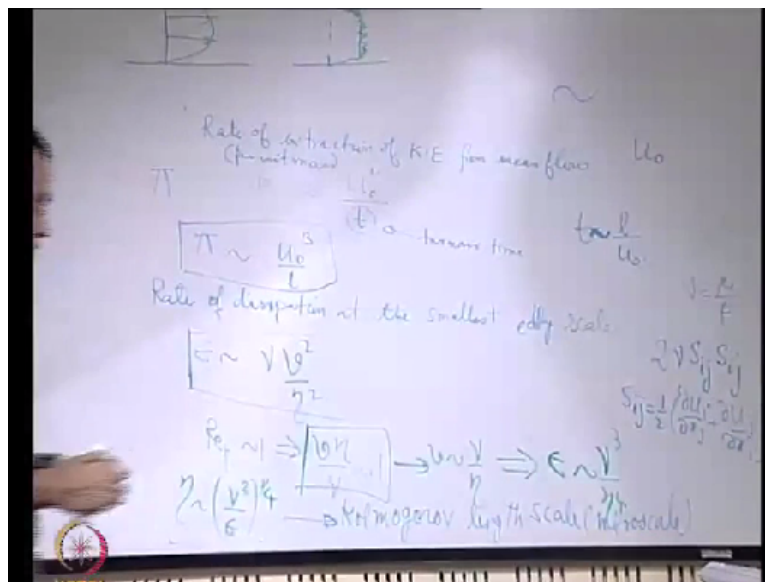 ~
Rate of extraction of K.E from mean flow u₀
(per unit mass)
π ~ u₀²
(t) → turnover time t ~ l/u₀
π ~ u₀³/l
Rate of dissipation at the smallest eddy scale
ν = μ/ρ
ε ~ ν υ²/η² 2νSᵢⱼSᵢⱼ
Sᵢⱼ = 1/2 (∂uᵢ/∂xⱼ + ∂uⱼ/∂xᵢ)
Re ~ 1 ⇒ υη/ν ~ 1 → υ ~ ν/η ⇒ ε ~ ν³/η⁴
η ~ (ν³/ε)^¼ → Kolmogorov length scale (microscale)